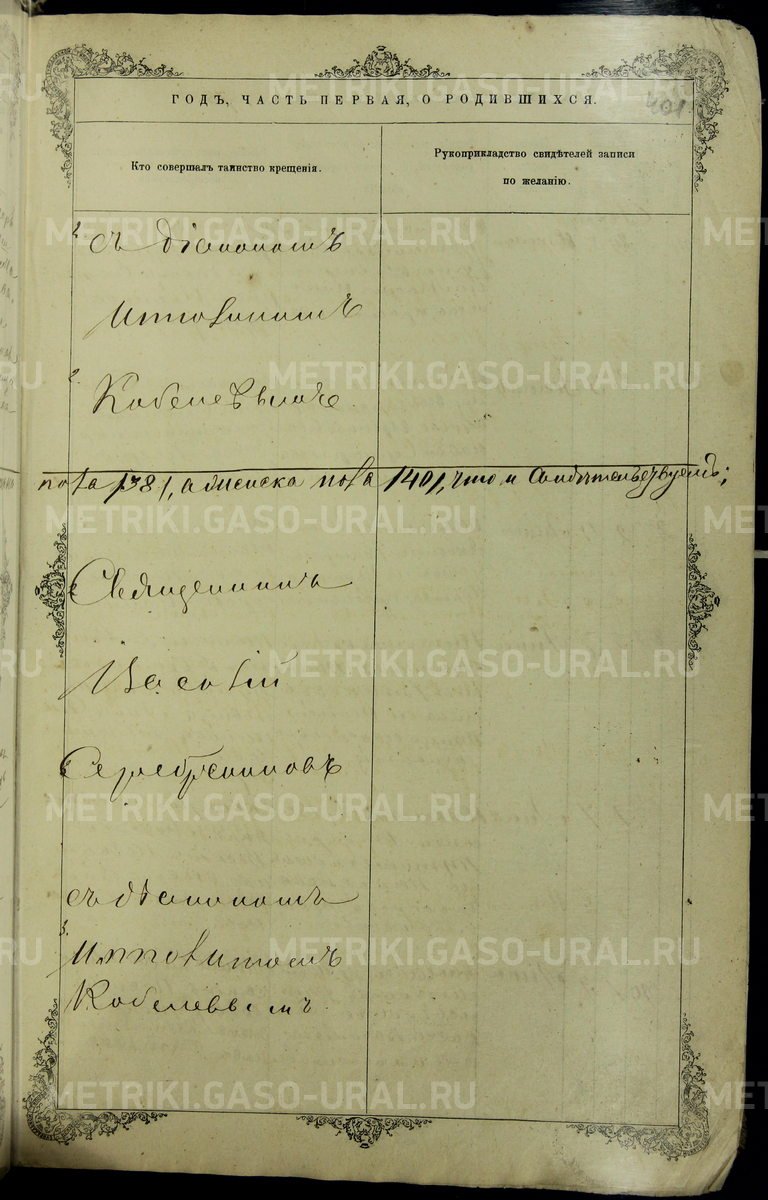 ГОДЪ, ЧАСТЬ ПЕРВАЯ, О РОДИВШИХСЯ.
401
Кто совершалъ таинство крещенія.
Рукоприкладство свидѣтелей записи
по желанію.
съ діакономъ
Ипполитомъ
Кобелевымъ.
пола 138, а женска пола 140, что и свидѣтельствуемъ;
Священникъ
Василій
Серебренниковъ
съ діакономъ
Ипполитомъ
Кобелевымъ.
METRIKI.GASO-URAL.RU